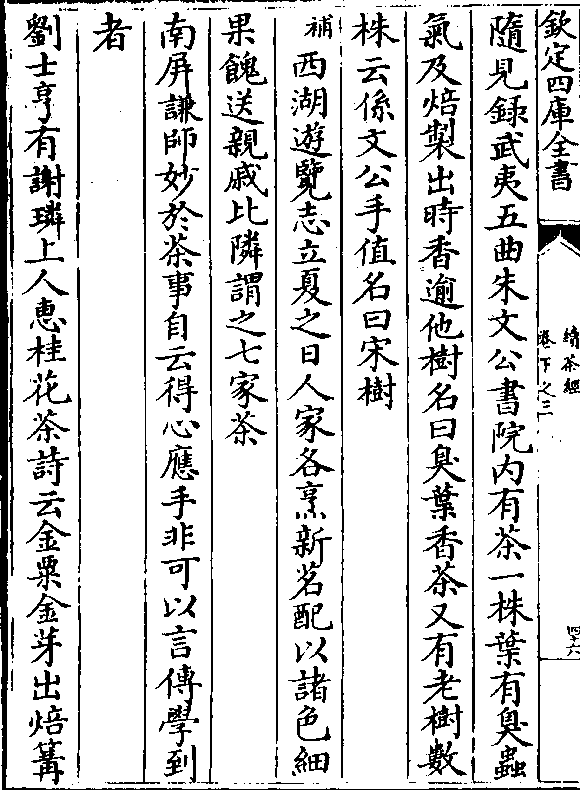 欽定四庫全書
續茶經
卷下之三
四十六
隨見録武夷五曲朱文公書院内有茶一株葉有臭蟲
氣及焙製出時香逾他樹名曰臭葉香茶又有老樹數
株云係文公手值名曰宋樹
補西湖遊覽志立夏之日人家各烹新茗配以諸色細
果餽送親戚比隣謂之七家茶
南屏謙師妙於茶事自云得心應手非可以言傳學到
者
劉士亨有謝璘上人惠桂花茶詩云金粟金芽出焙篝